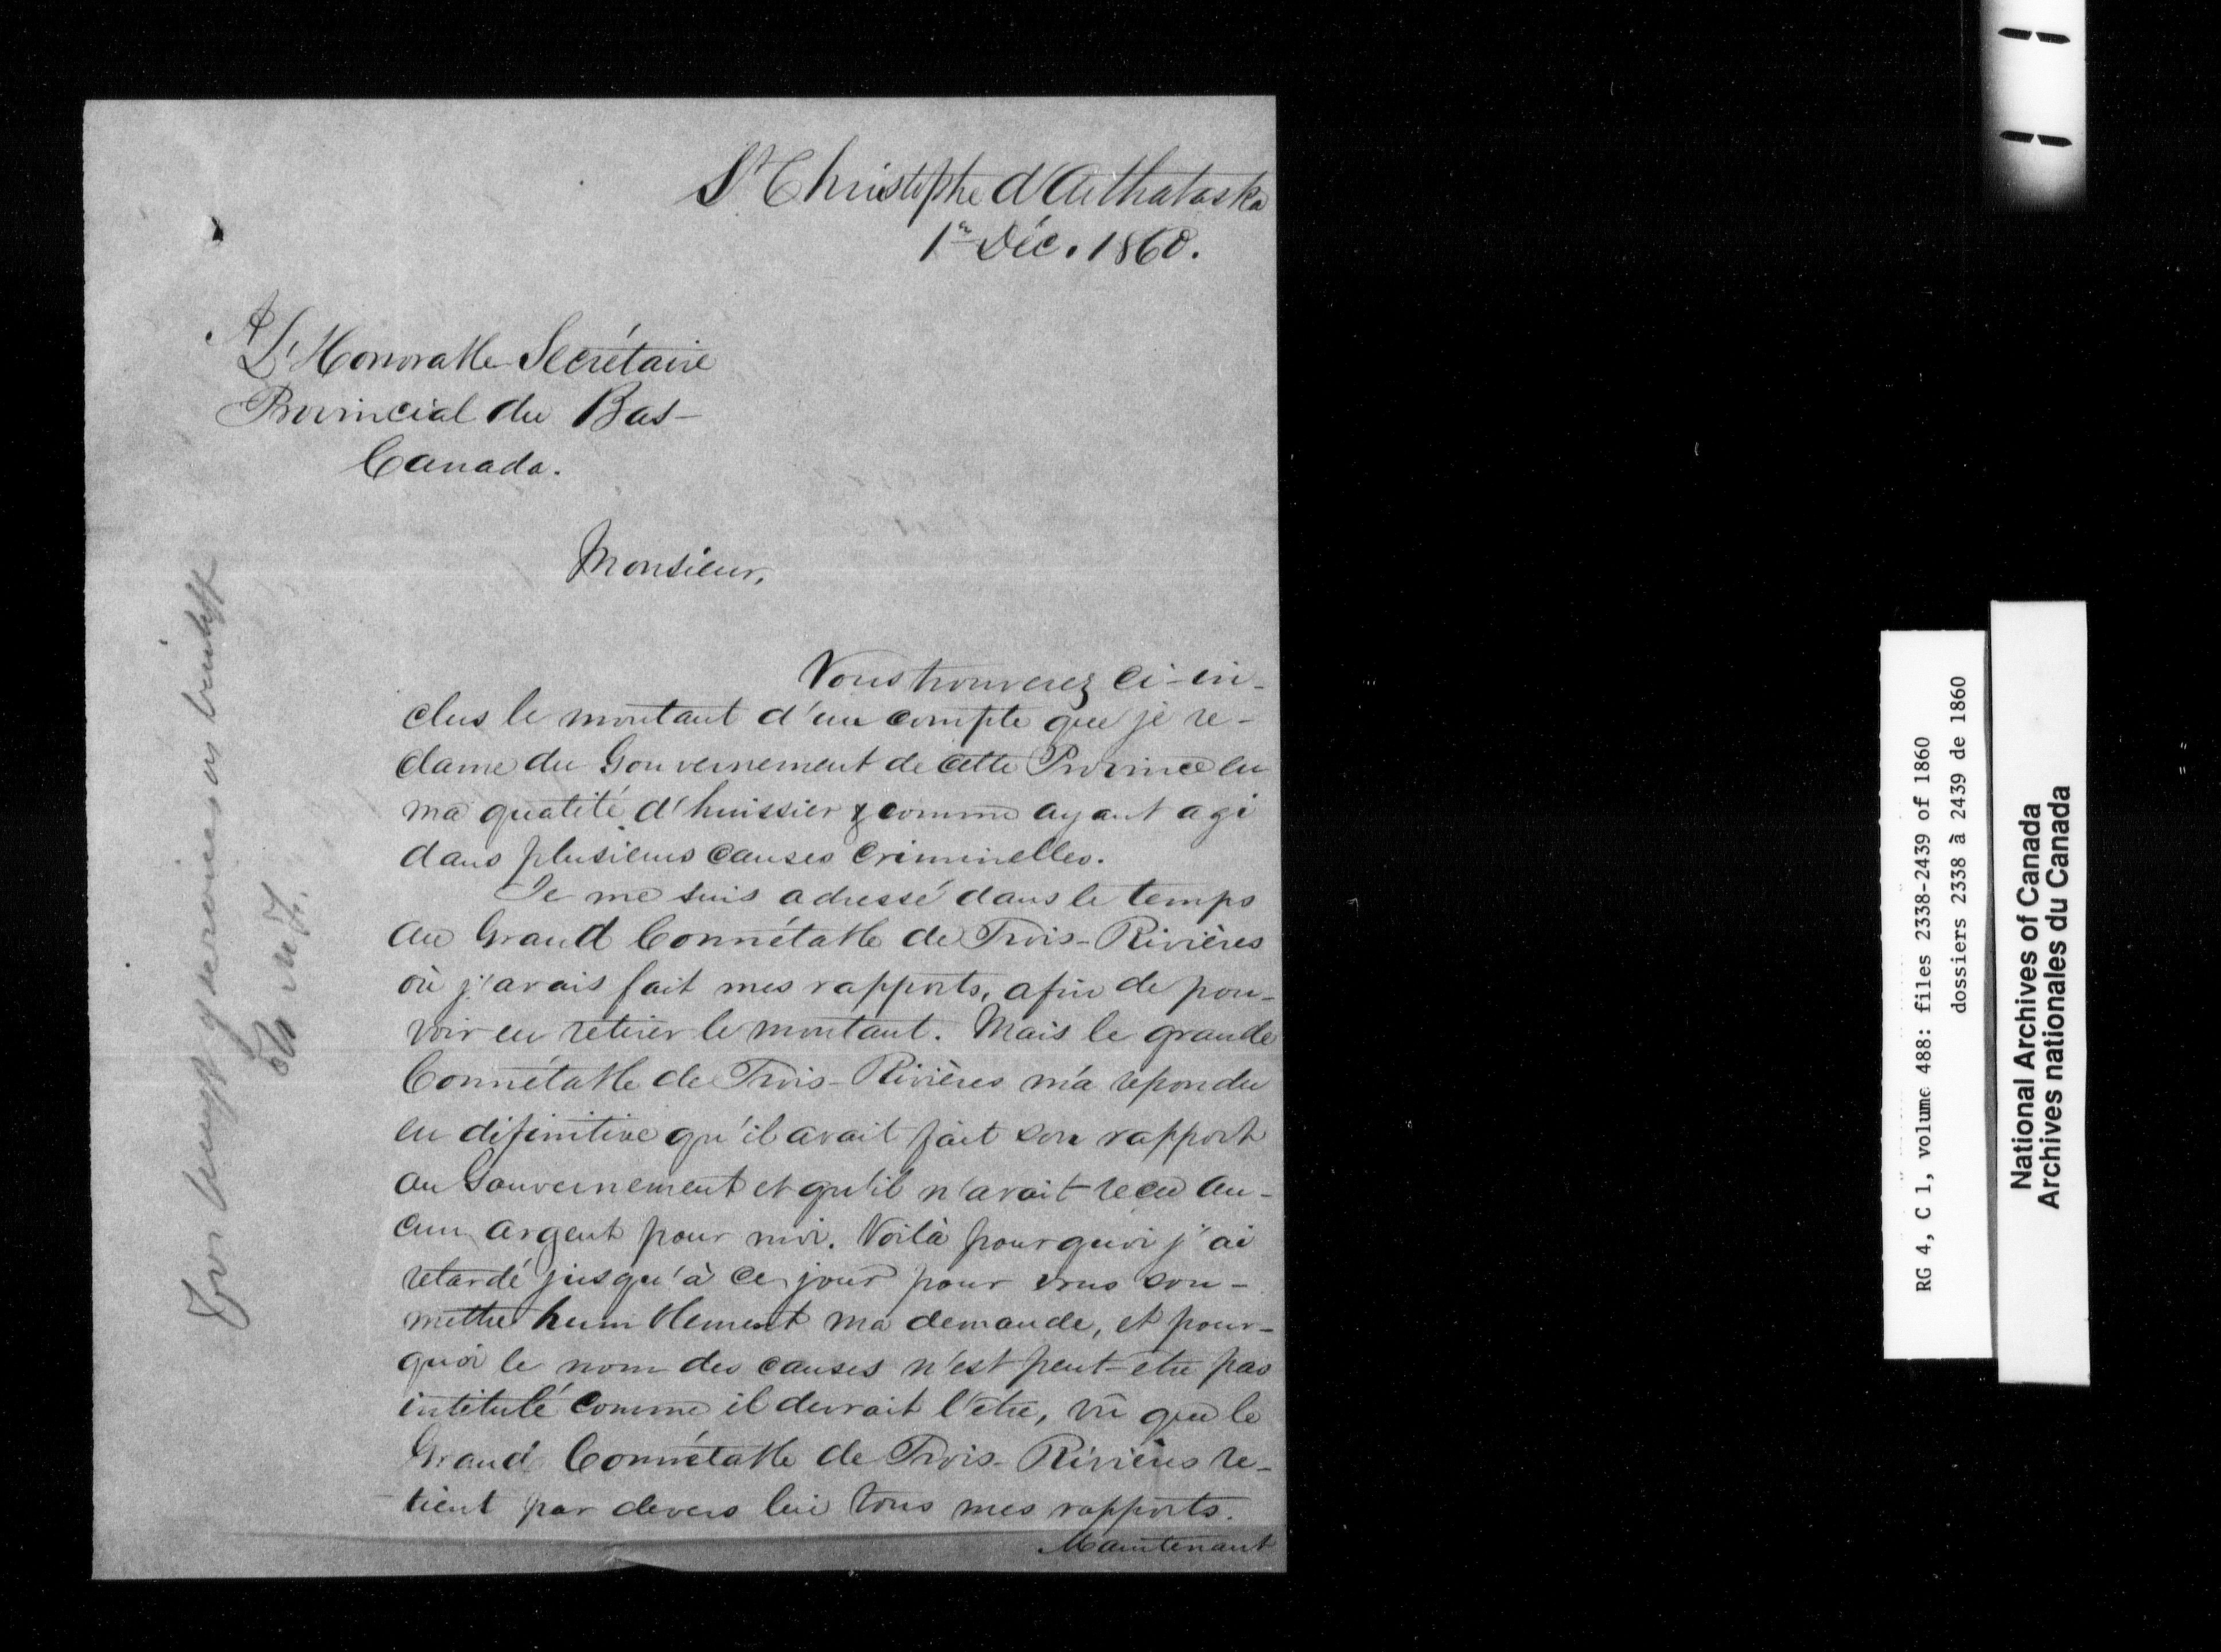 St Christophe d'Arthabaska
1er Déc. 1860.
A
L'Honorable Secrétaire
Provincial du Bas-
Canada.
Monsieur,
Vous trouverez ci-in-
clus le montant d'un compte que je ré-
clame du Gouvernement de cette Province en
ma qualité d'huissier & comme ayant agi
dans plusieurs causes criminelles.
Je me suis adressé dans le temps
au Grand Connétable de Trois-Rivières
où j'avais fait mes rapports, afin de pou-
voir en retirer le montant. Mais le grand
Connétable de Trois-Rivières m'a repondu
en définitive qu'il avait fait son rapport
au Gouvernement et qu'il n'avait reçu au-
cun argent pour moi. Voilà pourquoi j'ai
retardé jusqu'à ce jour pour vous sou-
mettre humblement ma demande, et pour-
quoi le nom des causes n'est peut-etre pas
intitulé comme il devrait l'etre, vû que le
Grand Connétable de Trois-Rivières re-
tient par devers lui tous mes rapports.
Maintenant
For services as bailiff
RG 4, C 1, volume 488: files 2338-2439 of 1860
dossiers 2338 à 2439 de 1860
National Archives of Canada
Archives nationales du Canada